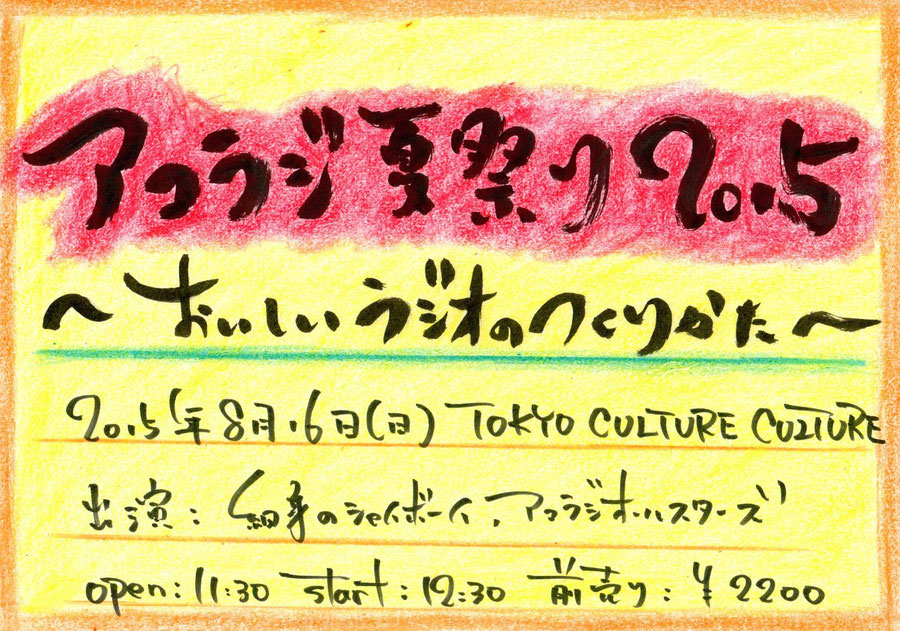 アコラジ夏祭り2015
～おいしいラジオのつくりかた～
2015年8月16日(日) TOKYO CULTURE CULTURE
出演：細身のシャイボーイ、アコラジオールスターズ
open:11:30 start:12:30 前売り:¥2200